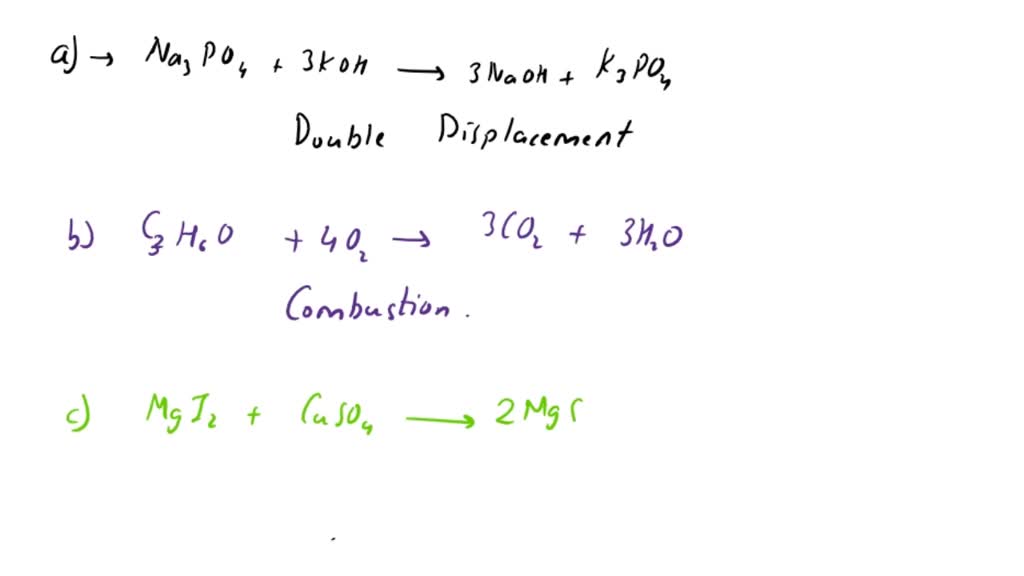 a) → Na₃PO₄ + 3KOH → 3NaOH + K₃PO₄
Double Displacement
b) C₃H₆O + 4O₂ → 3CO₂ + 3H₂O
Combustion.
c) MgI₂ + CuSO₄ → 2Mg